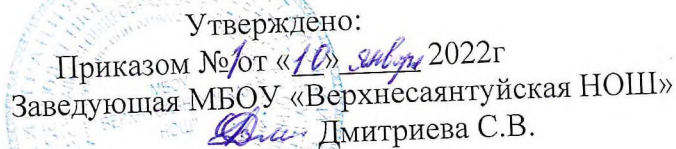 Утверждено:
Приказом №1 от «10» января 2022г
Заведующая МБОУ «Верхнесаянтуйская НОШ»
Дмитриева С.В.